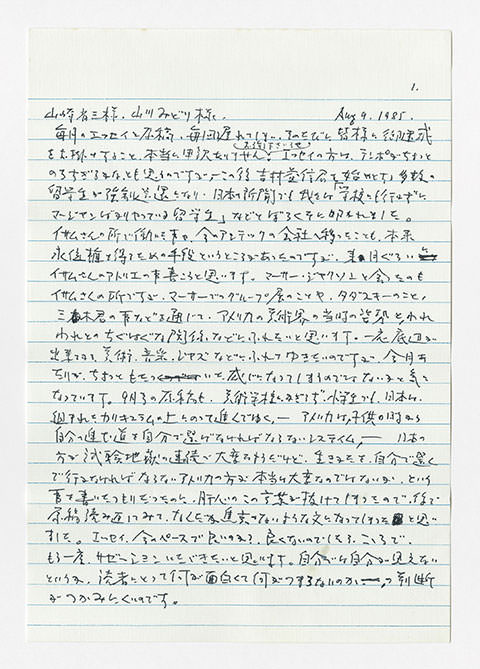 1.
山崎省三様、山川みどり様、 Aug 9. 1985.
毎月のエッセイと原稿、毎回遅れてしまい、そのたびに皆様に御迷惑
をお掛けすること、本当に申訳ありません。エッセイの方は、テンポがちょっと
のろすぎるかなとも思うのですが、この後吉村益信君を始めとする多数の
留学生が強制
日本の新聞でも我々は「学校にも行かずに
マージャンばかりやっている留学生」などとぼろくそに叩かれました。
イサムさんの所で働いた事や、今のアンティックの会社へ移ったことも、本来
永住権を得るための手段というところがあったのですが、
イサムさんのアトリエの事書こうと思います。マーサー・ジャクソンと会ったのも
イサムさんの所ですが、マーサーでのグループ展のことや、タダスキーのこと、
三木君の事などを通じて、アメリカの美術界の当時の姿勢と、われ
われとのちぐはぐな関係などにふれたいと思います。
美術、音楽、ジャズなどにふれてゆきたいのですが、今月あ
たりが、ちょっともたついた感じになってしまうのではないかと気に
なっています。9月号の原稿も、美術学校にかぎらず、小学生でも、日本は、
組まれたカリキュラムの上にのって進んでゆく、― アメリカは、子供の時から
自分の進む道を自分で選ばなければならないシステム、― 日本の
方が試験地獄の連続で大変なようだけど、生き方を、自分で選ん
で行かなければならないアメリカの方が本当は大変なのではないか、という
事を書いたつもりだったのに、肝心のこの言葉が抜けてしまったので、後で
原稿読み近してみて、なんだか真実のないような文になってしまったと思い
ました。エッセイ、今のペースで良いのか、良くないのでしょうか、ここで、
もう一度、サゼーションいただきたいと思います。自分では自分が見えない
というか、読者にとって何が面白くて何がつまらないのか ― の判断
がつかみにくいのです。